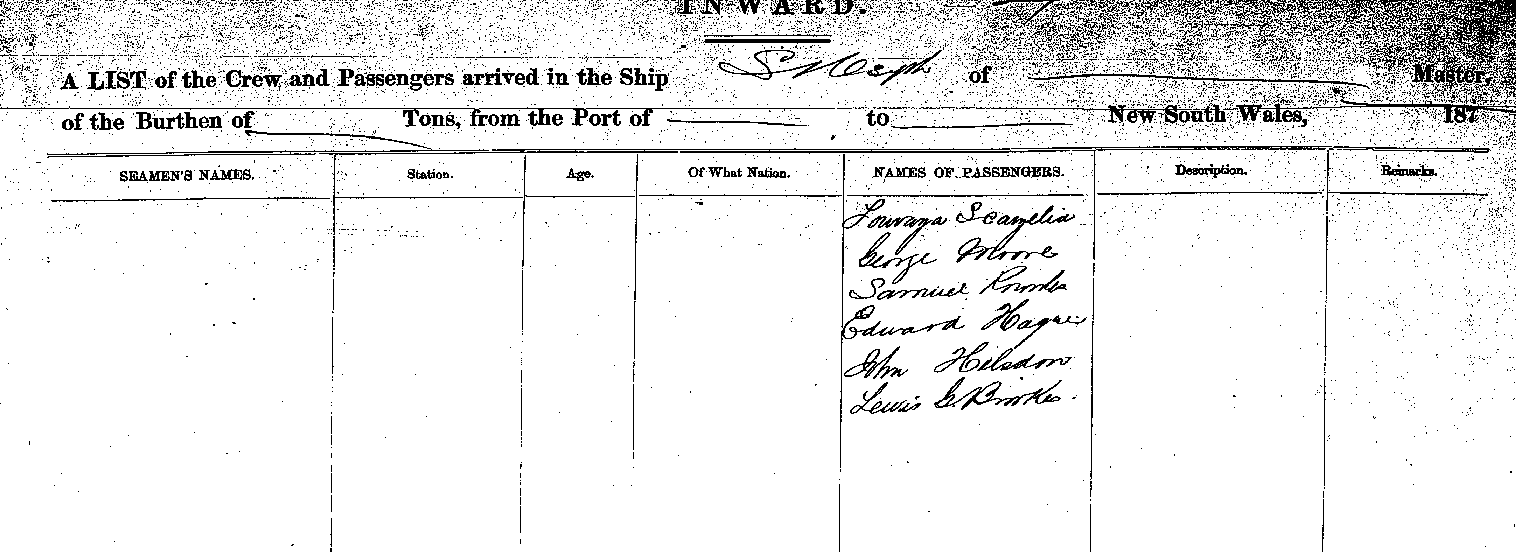 INWARD.
A LIST of the Crew and Passengers arrived in the Ship of Master,
of the Burthen of Tons, from the Port of to New South Wales, 187
SEAMEN'S NAMES. Station. Age. Of What Nation. NAMES OF PASSENGERS. Description. Remarks.
George Moore
Samuel
Edward
John Hilsdon
Lewis G Brookes.